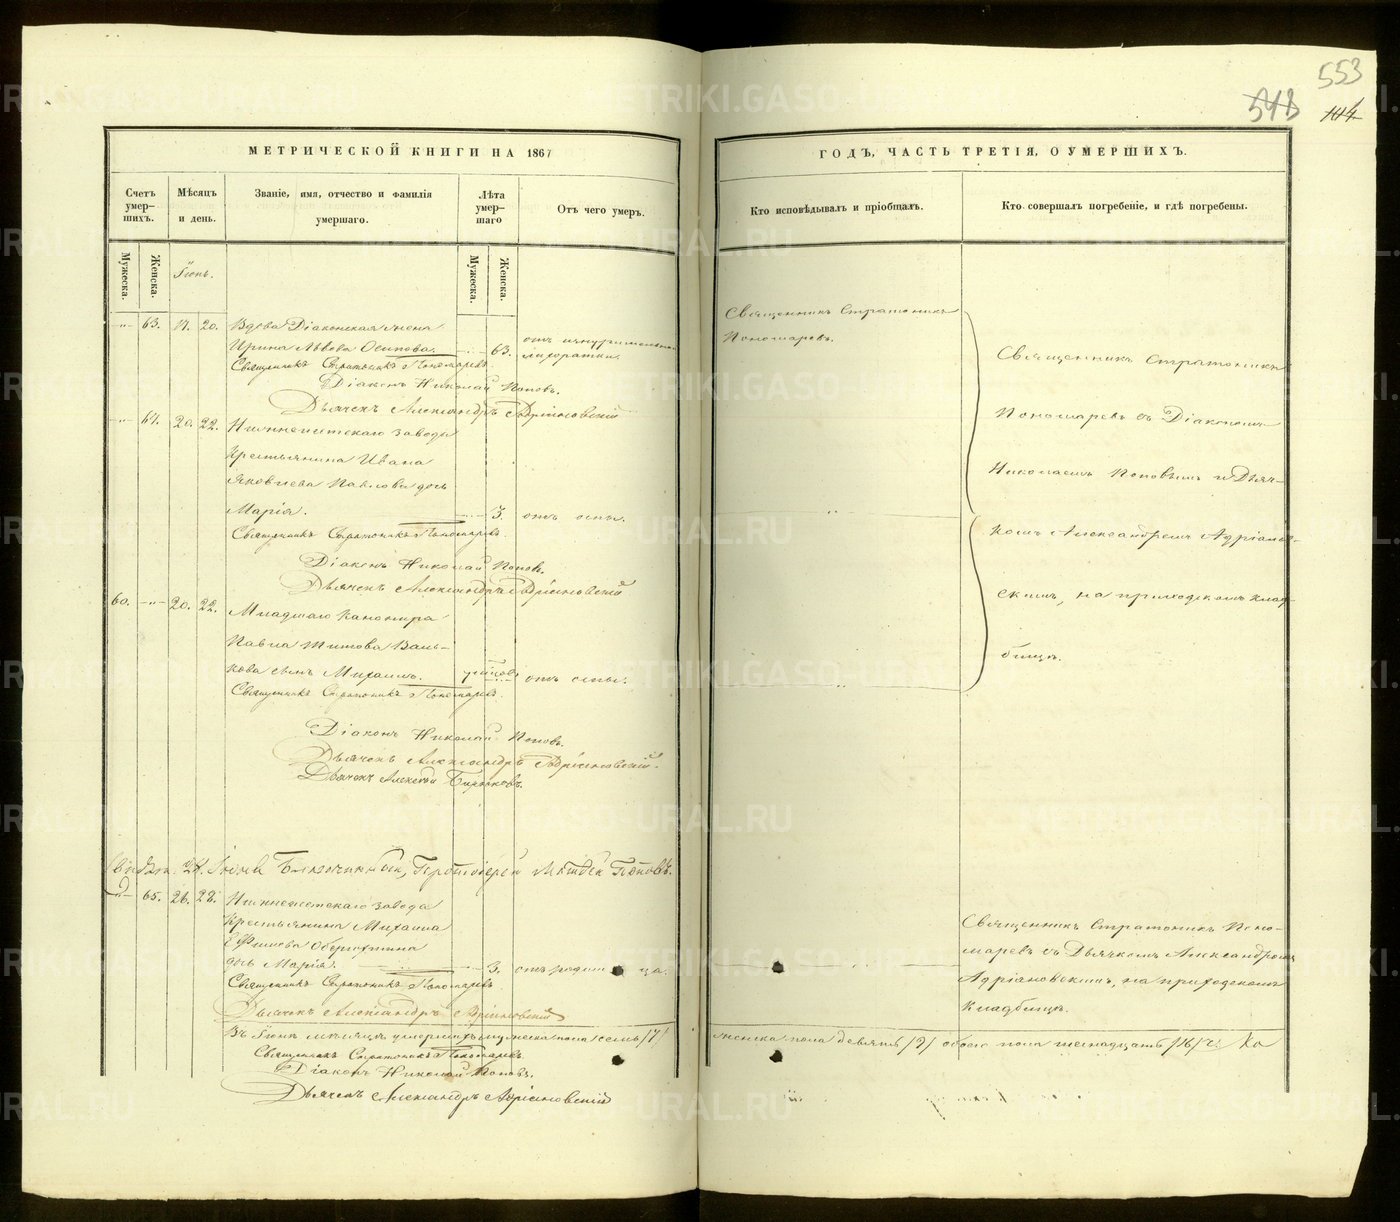 553
МЕТРИЧЕСКОЙ КНИГИ НА 1867
ГОДЪ, ЧАСТЬ ТРЕТІЯ, О УМЕРШИХЪ.
Счетъ умер-шихъ.
Мѣсяцъ и день.
Званіе, имя, отчество и фамилія умершаго.
Лѣта умер-шаго
Отъ чего умеръ.
Кто исповѣдывалъ и пріобщалъ.
Кто совершалъ погребеніе, и гдѣ погребены.
Мужеска.
Женска.
Мужеска.
Женска.
Іюнь.
63. 17. 20. Вдова Діаконская жена
Ирина Львова Осипова. 63. отъ изнурительной лихорадки.
Священникъ Стратоникъ Пономаревъ.
Діаконъ Николай Поповъ.
Дьячекъ Александръ Адріановскій
64. 20. 22. завода
Крестьянина Ивана
Яковлева Павлова дочь
Марія. 3. отъ оспы.
Священникъ Стратоникъ Пономаревъ.
Діаконъ Николай Поповъ.
Дьячекъ Александръ Адріановскій
60. 20. 22. Младшаго канонира
Павла Титова Вань-
кова сынъ Михаилъ. отъ оспы.
Священникъ Стратоникъ Пономаревъ.
Діаконъ Николай Поповъ.
Дьячекъ Александръ Адріановскій.
Дьячекъ Алексѣй
Іюня Благочинный, Протоіерей Поповъ.
65. 26. 28. завода
Крестьянина Михаила
Ефимова
дочь Марія. 3. отъ
Священникъ Стратоникъ Пономаревъ
Дьячекъ Александръ Адріановскій
Въ Іюнѣ мѣсяцѣ умершихъ мужеска пола семь /7/
Священникъ Стратоникъ Пономаревъ
Діаконъ Николай Поповъ.
Дьячекъ Александръ Адріановскій
Священникъ Стратоникъ
Пономаревъ.
Священникъ Стратоникъ
Пономаревъ съ Діакономъ
Николаемъ Поповымъ и Дьяч-
комъ Александромъ Адріанов-
скимъ, на приходскомъ клад-
бищѣ.
Священникъ Стратоникъ Поно-
маревъ съ Дьячкомъ Александромъ
Адріановскимъ, на приходскомъ
кладбищѣ.
женска пола девять /9/ обоего пола шенадцать /16/
METRIKI.GASO-URAL.RU